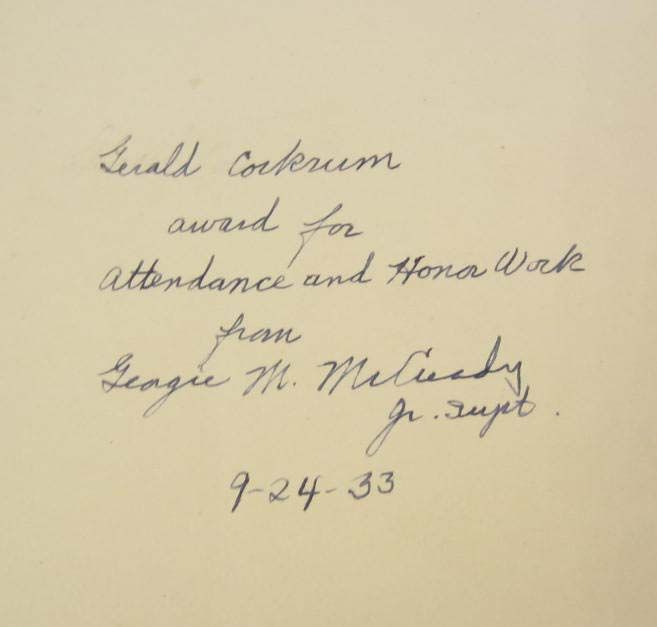 Gerald Cockrum
award for
Attendance and Honor Work
from
Georgie M. McCready
Jr. Supt.
9-24-33